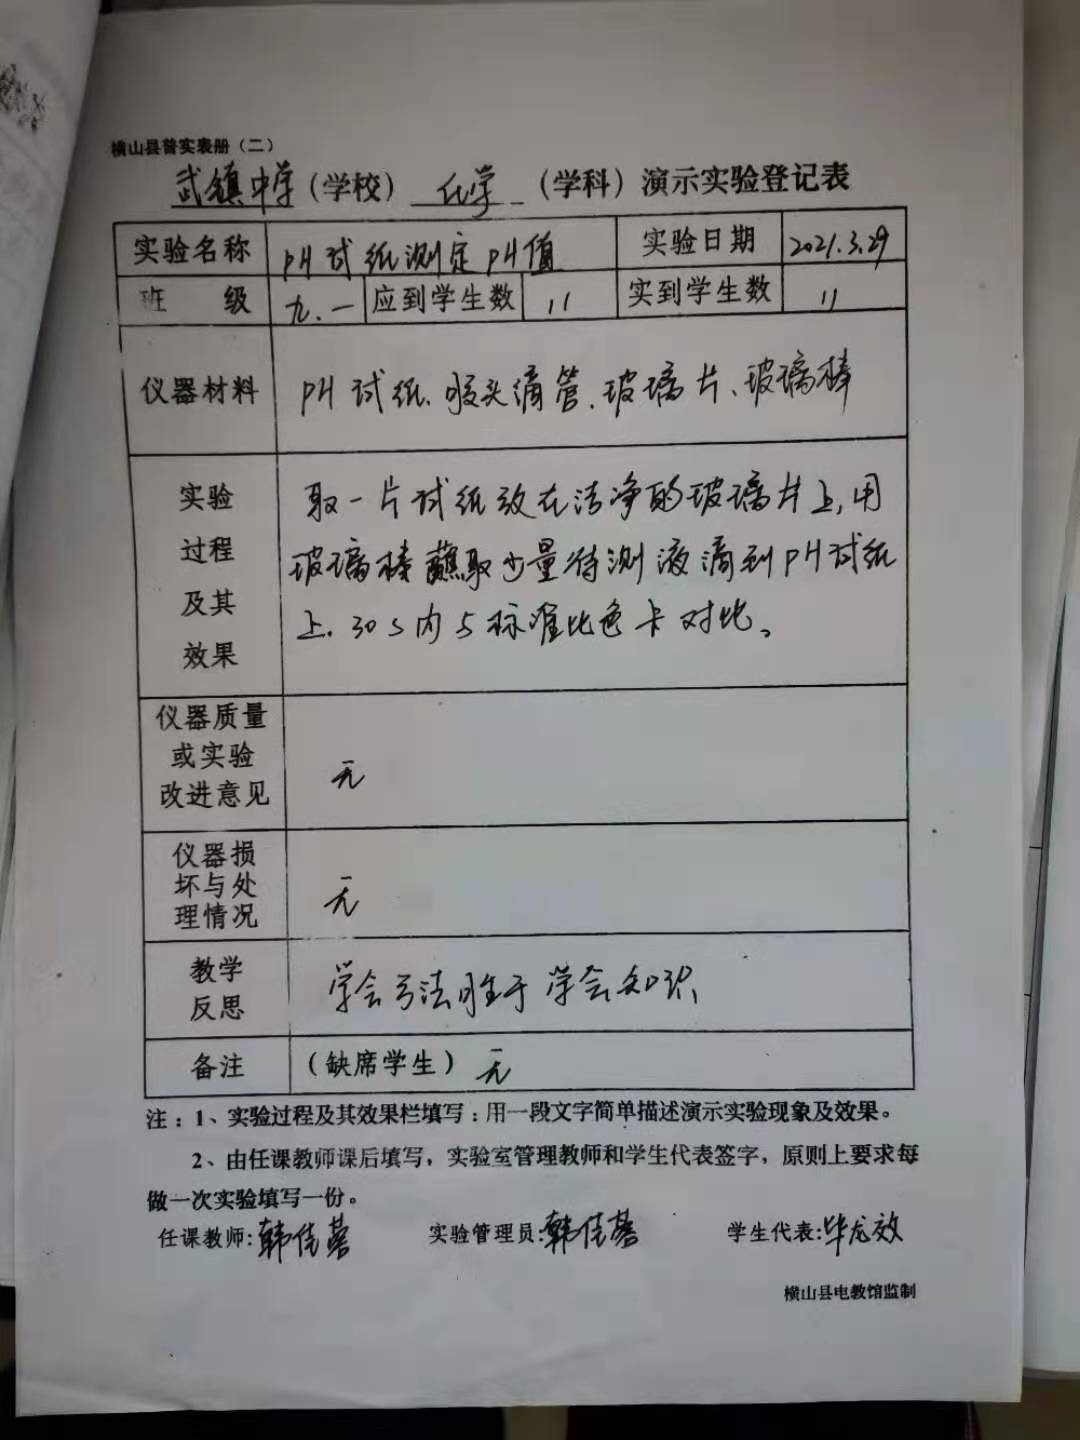 横山县普实表册（二）
武镇中学（学校）化学（学科）演示实验登记表
实验名称 PH试纸测定PH值 实验日期 2021.3.29
班 级 九.一 应到学生数 11 实到学生数 11
仪器材料 PH试纸、胶头滴管、玻璃片、玻璃棒
实验
过程
及其
效果
取一片试纸放在洁净的玻璃片上,用
玻璃棒蘸取少量待测液滴到PH试纸
上.30s内与标准比色卡对比。
仪器质量
或实验
改进意见
无
仪器损
坏与处
理情况
无
教学
反思
学会方法胜于学会知识
备注 （缺席学生）无
注：1、实验过程及其效果栏填写：用一段文字简单描述演示实验现象及效果。
2、由任课教师课后填写，实验室管理教师和学生代表签字，原则上要求每
做一次实验填写一份。
任课教师:韩佳蓉 实验管理员:韩佳蓉 学生代表:毕龙效
横山县电教馆监制